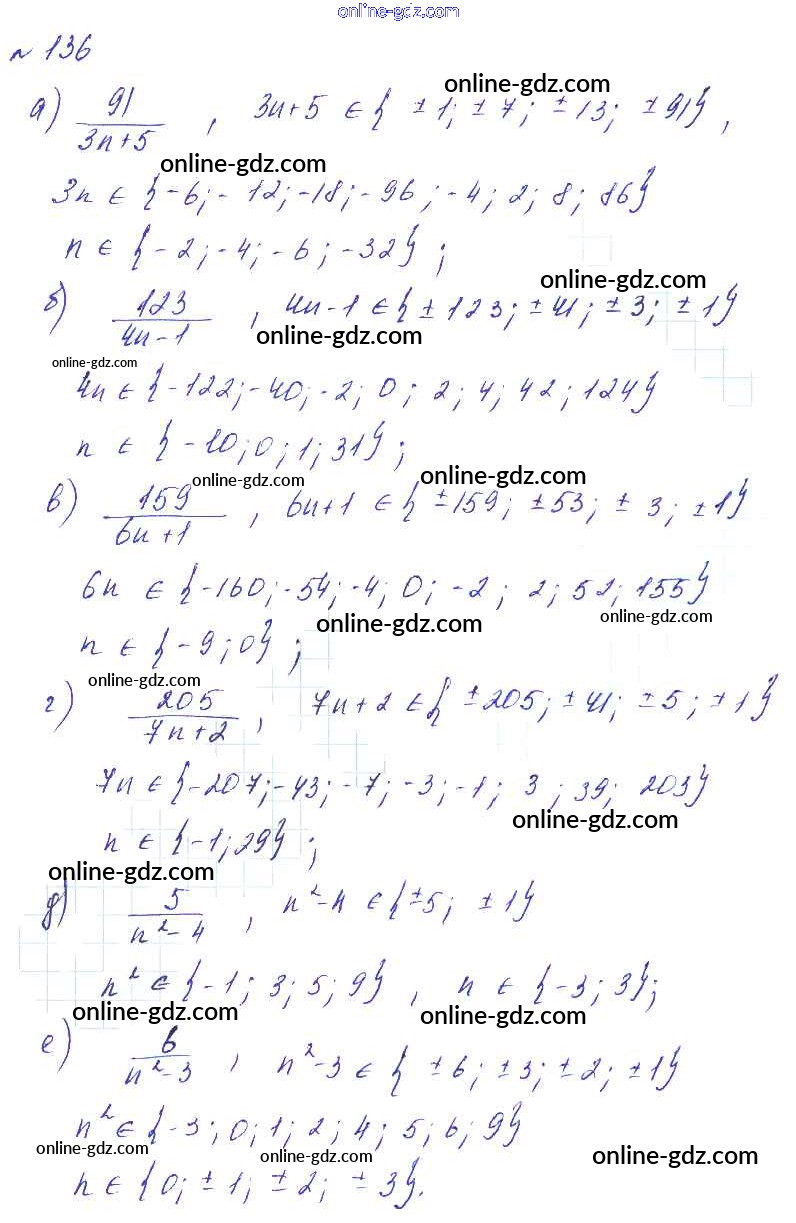 online-gdz.com
№ 136
online-gdz.com
а) 91/(3n+5), 3n+5 ∈ { ±1; ±7; ±13; ±91},
online-gdz.com
3n ∈ {-6; -12; -18; -96; -4; 2; 8; 86}
n ∈ {-2; -4; -6; -32};
online-gdz.com
б) 123/(4n-1), 4n-1 ∈ { ±123; ±41; ±3; ±1}
online-gdz.com
online-gdz.com
4n ∈ {-122; -40; -2; 0; 2; 4; 42; 124}
n ∈ {-10; 0; 1; 31};
online-gdz.com
online-gdz.com
в) 159/(6n+1), 6n+1 ∈ { ±159; ±53; ±3; ±1}
6n ∈ {-160; -54; -4; 0; -2; 2; 52; 155}
online-gdz.com
online-gdz.com
n ∈ {-9; 0};
online-gdz.com
г) 205/(7n+2), 7n+2 ∈ { ±205; ±41; ±5; ±1}
7n ∈ {-207; -43; -7; -3; -1; 3; 39; 203}
online-gdz.com
n ∈ {-1; 29};
online-gdz.com
д) 5/(n²-4), n²-4 ∈ {±5; ±1}
n² ∈ {-1; 3; 5; 9}, n ∈ {-3; 3};
online-gdz.com
online-gdz.com
е) 6/(n²-3), n²-3 ∈ { ±6; ±3; ±2; ±1}
n² ∈ {-3; 0; 1; 2; 4; 5; 6; 9}
online-gdz.com
online-gdz.com
online-gdz.com
n ∈ {0; ±1; ±2; ±3}.